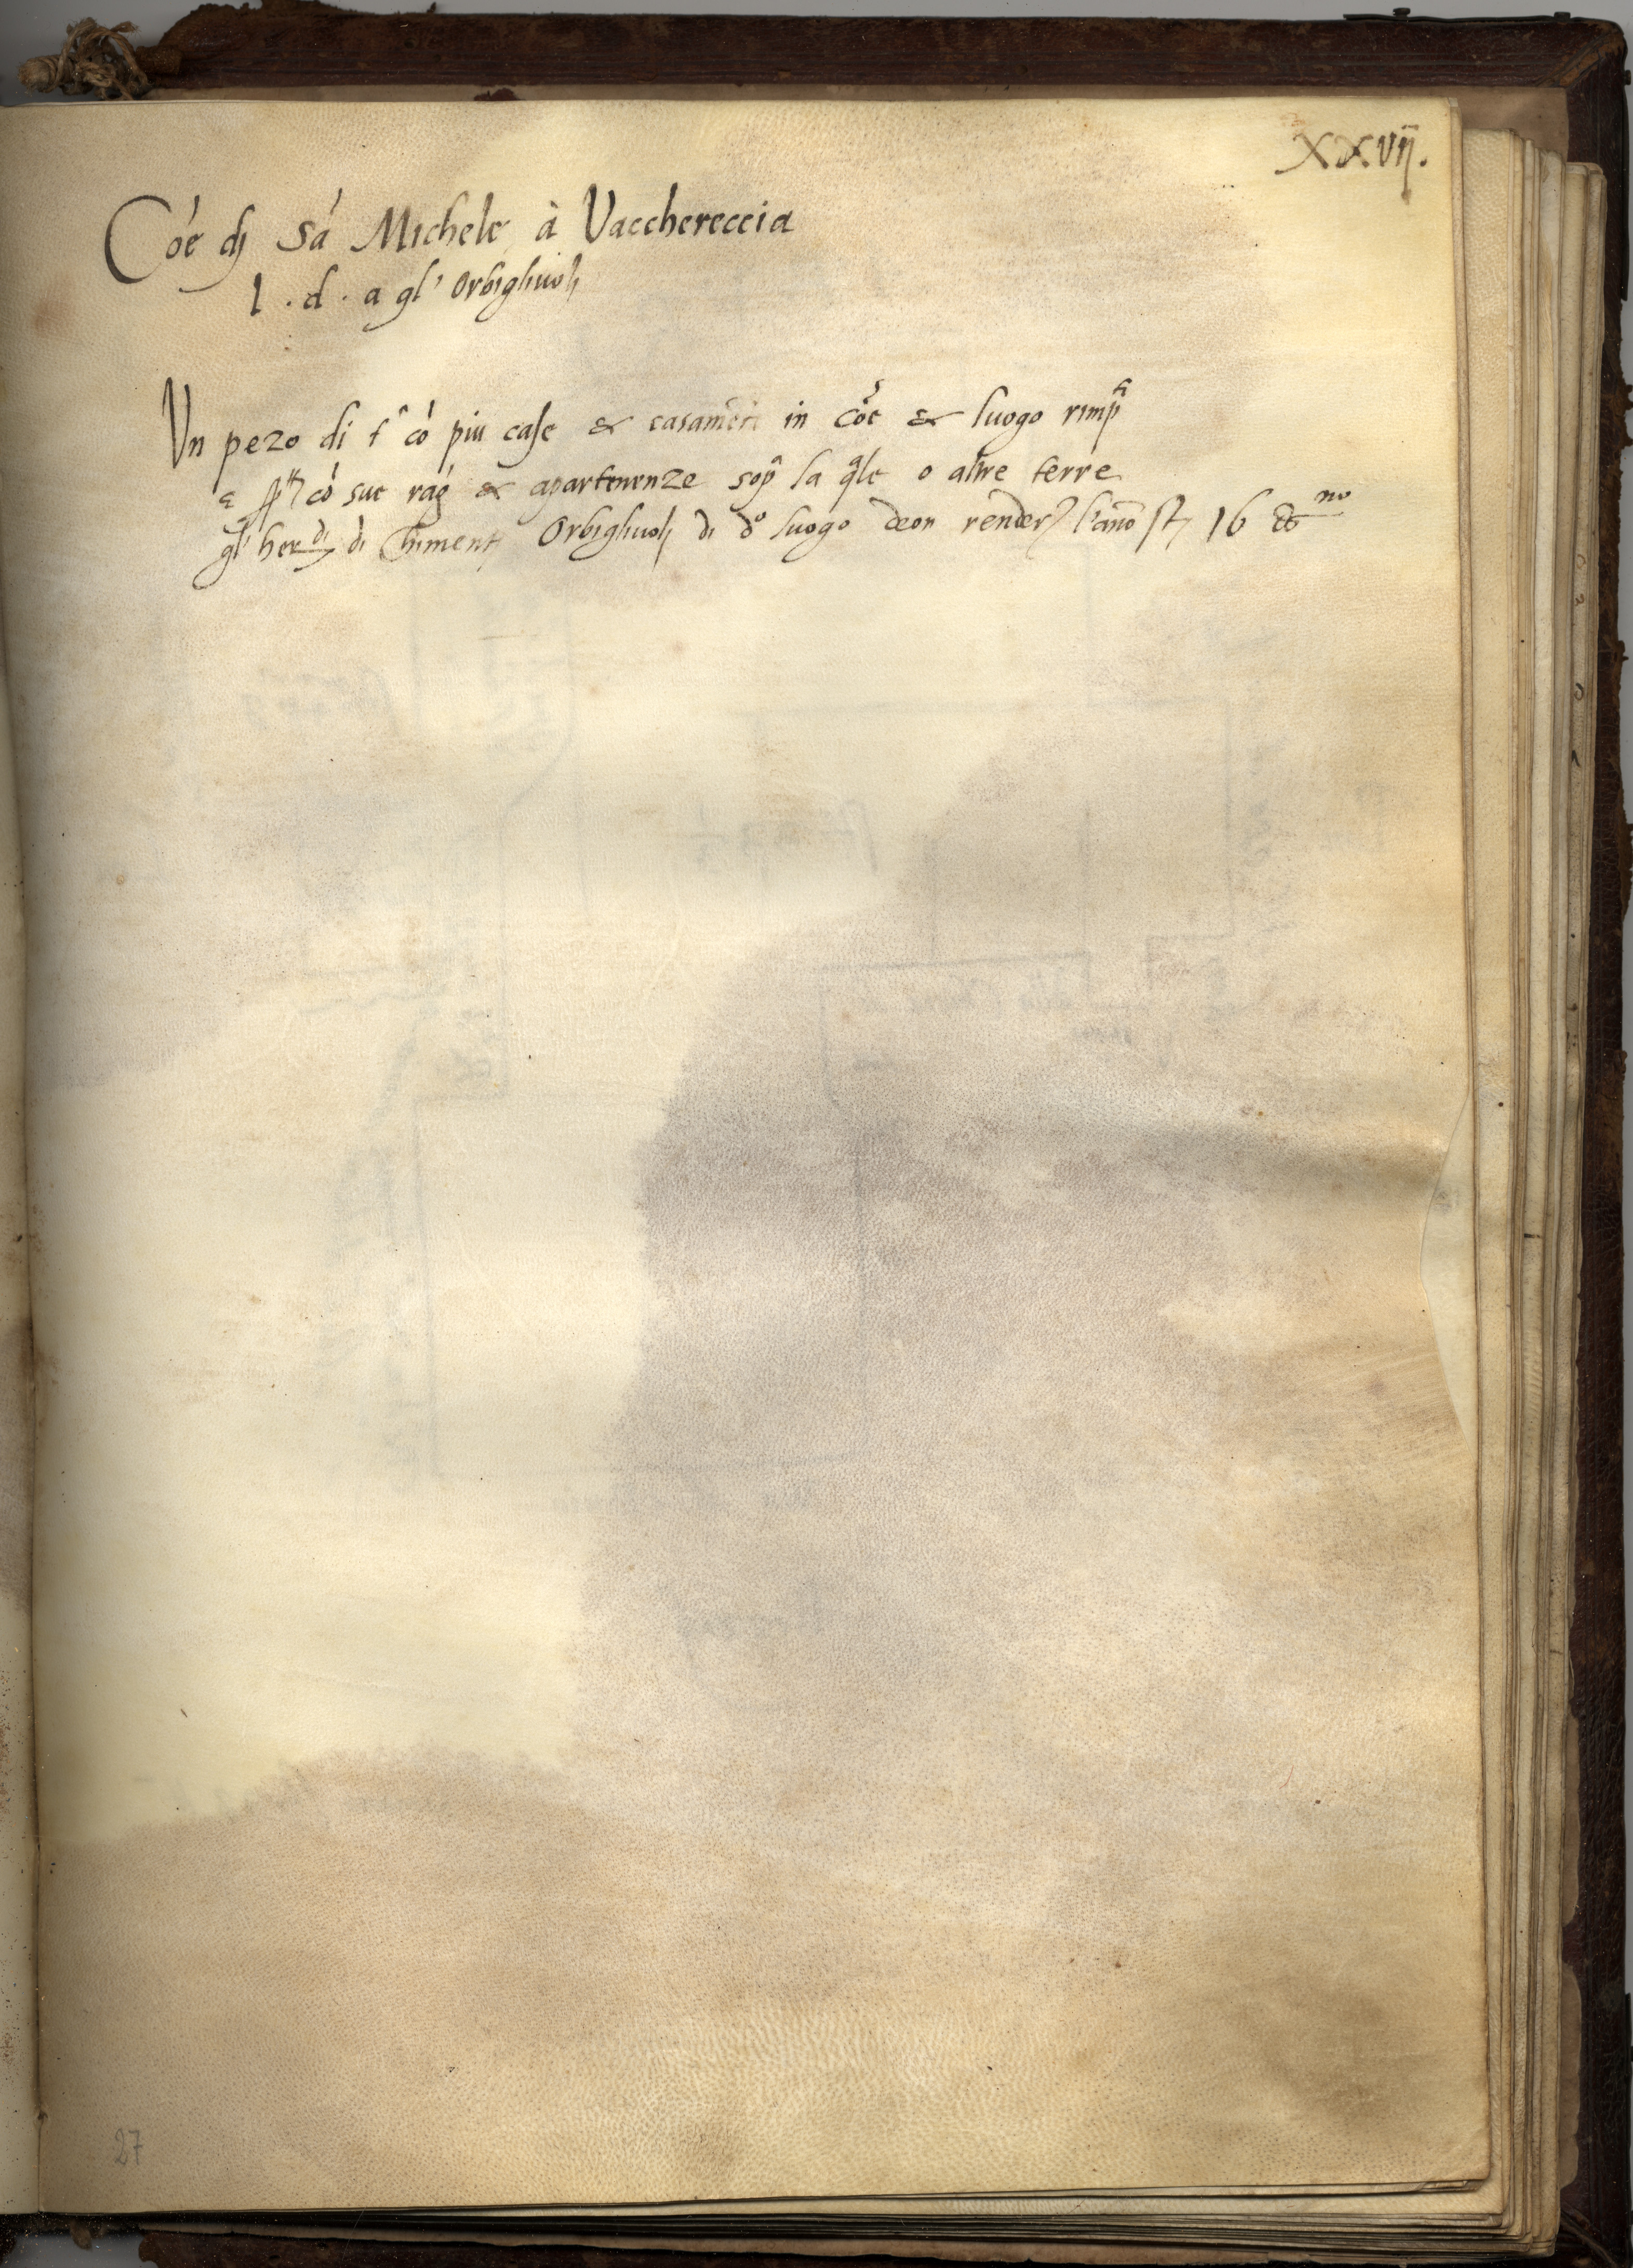 XXVIJ.
Cóe dj Sá Michele à Vacchereccia
l . d . a gl' Orbigliuolj
Vn pezo di t̂ có piu case & casamẽti in cóe & luogo rimp̃
có sue rág & apartenenze sop̃ la q̃le o altre terre
gl' heredi di Chimentj Orbigliuolj di do luogo deon render l'ano st 16 no
27